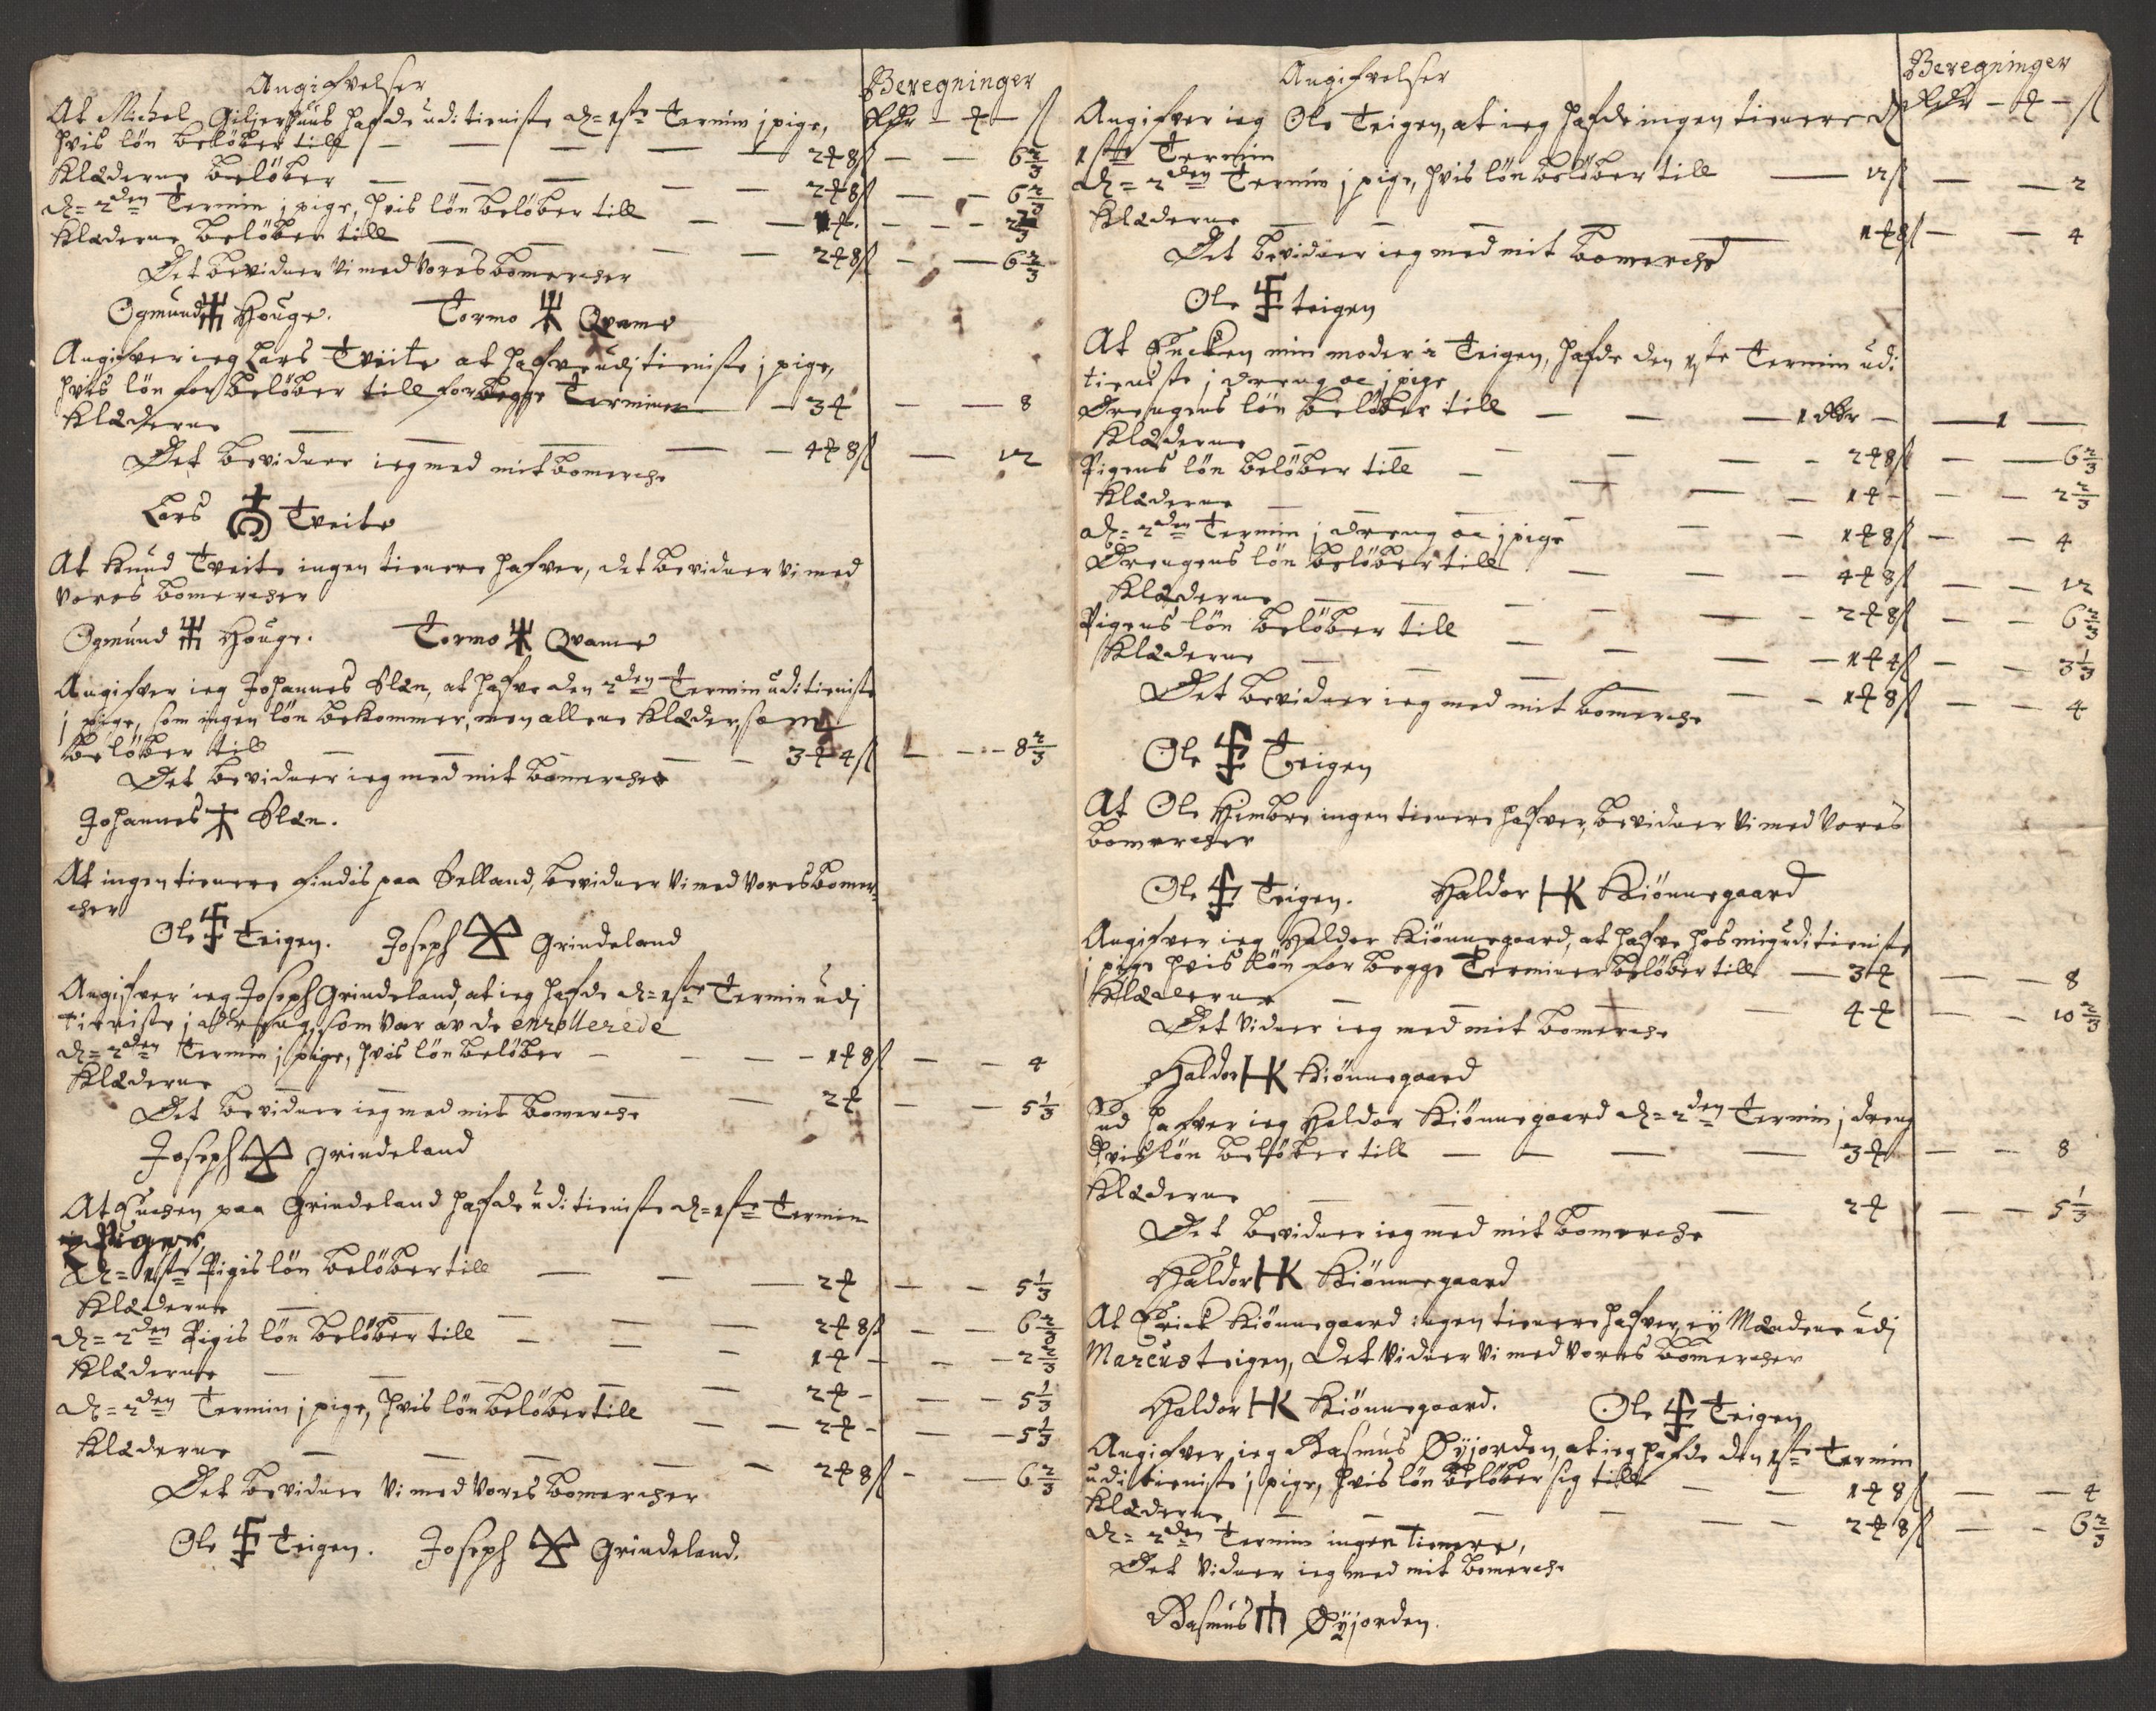 Angifvelser
Beregninger
At Michel Giljerhuus hafde udi tieniste d= 1ste Termin j pige, Rdr — ℔ — ß
hvis løn beløber till — — — — 2 ℔ 8 ß — — 6 2/3
Klæderne beløber — — — — 2 ℔ 8 ß — — 6 2/3
d= 2den Termin j pige, hvis løn beløber till — — 1 ℔. — — 2 2/3
Klæderne beløber till — — — 2 ℔ 8 ß — — 6 2/3
Det bevidner Vi med Vores bomercher
Ogmund Houge. Tormo Qvame
Angifver ieg Lars Tveite at hafve udj tieniste j pige,
hvis løn for beløber till for begge Terminer — 3 ℔ — — 8
Klæderne — — — — 4 ℔ 8 ß — 12
Det bevidner ieg med mit bomerche
Lars Tveite
At Knud Tveite ingen tienere hafver, det bevidner Vi med
Vores bomercher
Ogmund Houge. Tormo Qvame
Angifver ieg Johannes Slæn, at hafve den 2den Termin udi tieniste
j pige, som ingen løn bekommer, men allene Klæder, som
beløber till — — — — 3 ℔ 4 ß — — 8 2/3
Det bevidner ieg med mit bomerche
Johannes Slæn.
At ingen tienere findis paa Selland, bevidner Vi med Vores bomer-
cher
Ole Teigen. Joseph Grindeland
Angifver ieg Joseph Grindeland, at ieg hafde d= 1ste Termin udj
tieniste j dreng, som var av de enrollerede
d= 2den Termin j pige, hvis løn beløber — — — 1 ℔ 8 ß — — 4
Klæderne — — — — 2 ℔ — — 5 1/3
Det bevidner ieg med mit bomerche
Joseph Grindeland
At Enchen paa Grindeland hafde udi tieniste d= 1ste Termin
Piger
d= 1ste Pigis løn beløber till — — — 2 ℔ — — 5 1/3
Klæderne — — — 2 ℔ 8 ß — — 6 2/3
d= 2den Pigis løn beløber till — — — 1 ℔ — — 2 2/3
Klæderne — — — 2 ℔ — — 5 1/3
d= 2den Termin j pige, hvis løn beløber till — — 2 ℔ — — 5 1/3
Klæderne — — — 2 ℔ 8 ß — — 6 2/3
Det bevidner Vi med Vores bomercher
Ole Teigen. Joseph Grindeland.
Angifvelser
Beregninger
Angifver ieg Ole Teigen, at ieg hafde ingen tienere d= Rdr — ℔ — ß
1ste Termin
d= 2den Termin j pige, hvis løn beløber till — 12 ß — — 2
Klæderne — — — 1 ℔ 8 ß — — 4
Det bevidner ieg med mit bomerche
Ole Teigen
At Encken min moder i Teigen, hafde den 1ste Termin udi
tieniste j dreng oc j pige
Drengens løn beløber till — — — 1 dlr — — 1 —
Klæderne — — — 2 ℔ 8 ß — — 6 2/3
Pigens løn beløber till — — — 1 ℔ — — 2 2/3
Klæderne — — — 1 ℔ 8 ß — — 4
d= 2den Termin j dreng oc j pige
Drengens løn beløber till — — — 4 ℔ 8 ß — — 12
Klæderne — — — 2 ℔ 8 ß — — 6 2/3
Pigens løn beløber till — — — 1 ℔ 4 ß — — 3 1/3
Klæderne — — — 1 ℔ 8 ß — — 4
Det bevidner ieg med mit bomerche
Ole Teigen
At Ole Himbre ingen tienere hafver, bevidner Vi med Vores
bomercher
Ole Teigen. Haldor HK Kiønnegaard
Angifver ieg Haldor Kiønnegaard, at hafve hos mig udi tieniste
j pige hvis løn for begge Terminer beløber till — 3 ℔ — — 8
Klæderne — — — 4 ℔ — — 10 2/3
Det vidner ieg med mit bomerche
Haldor HK Kiønnegaard
End hafver ieg Haldor Kiønnegaard d= 2den Termin j dreng
hvis løn beløber till — — — 3 ℔ — — 8
Klæderne — — — 2 ℔ — — 5 1/3
Det bevidner ieg med mit bomerche
Haldor HK Kiønnegaard
At Erick Kiønnegaard ingen tienere hafver, ey Mændene udj
Marcusteigen, Det Vidner Vi med Vores bomercher
Haldor HK Kiønnegaard. Ole Teigen
Angifver ieg Rasmus Øyjorden, at ieg hafde den 1ste Termin
udi tieniste j pige, hvis løn beløber sig till — — 1 ℔ 8 ß — — 4
Klæderne — — — 2 ℔ 8 ß — — 6 2/3
d= 2den Termin ingen tienere,
Det Vidner ieg med mit bomerche
Rasmus Øyjorden.